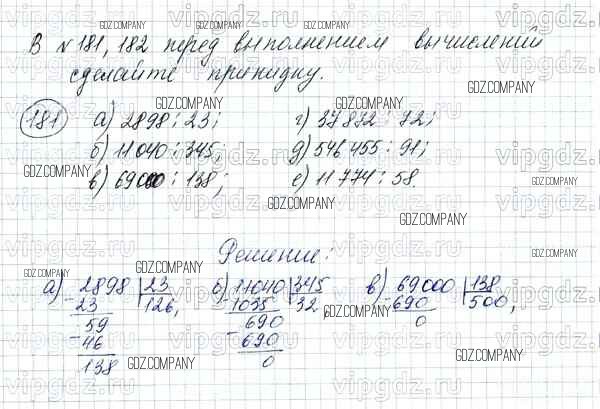 В №181, 182 перед выполнением вычислений
сделайте прикидку.
181 а) 2898 : 23; г) 37872 : 72;
б) 11040 : 345; д) 546455 : 91;
в) 69000 : 138; е) 11774 : 58.
Решение:
а) 2898 | 23 б) 11040 | 345 в) 69000 | 138
- 23 126, - 1035 32, - 690 500,
59 690 0
- 46 - 690
138 0
GDZ.COMPANY
vipgdz.ru